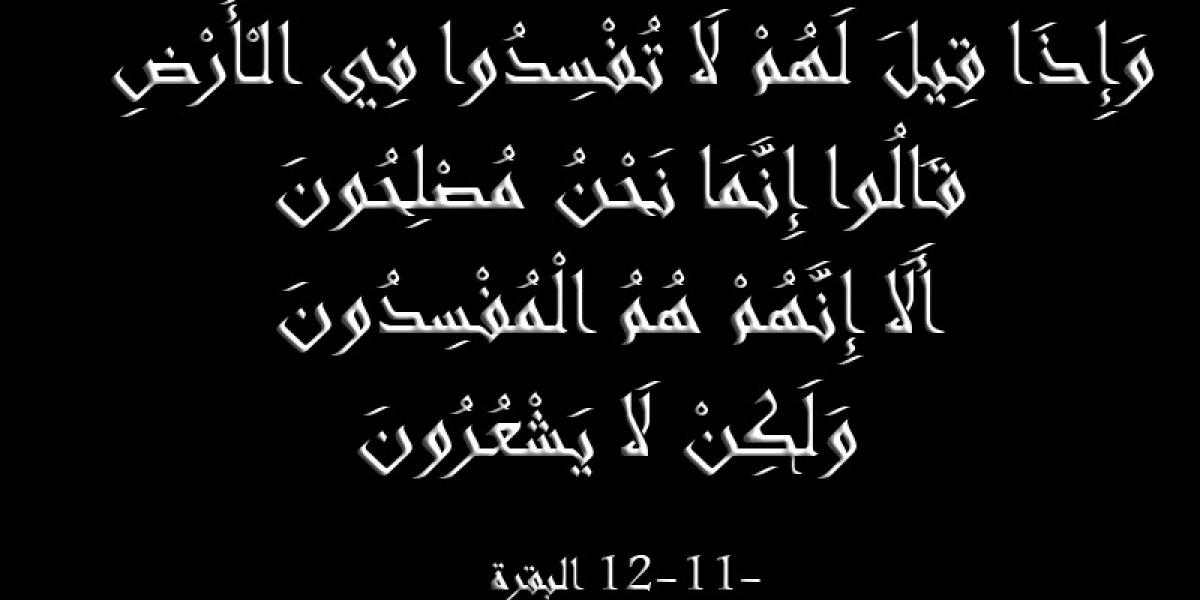 وَإِذَا قِيلَ لَهُمْ لَا تُفْسِدُوا فِي الْأَرْضِ
قَالُوا إِنَّمَا نَحْنُ مُصْلِحُونَ
أَلَا إِنَّهُمْ هُمُ الْمُفْسِدُونَ
وَلَكِنْ لَا يَشْعُرُونَ
-11-12 البقرة